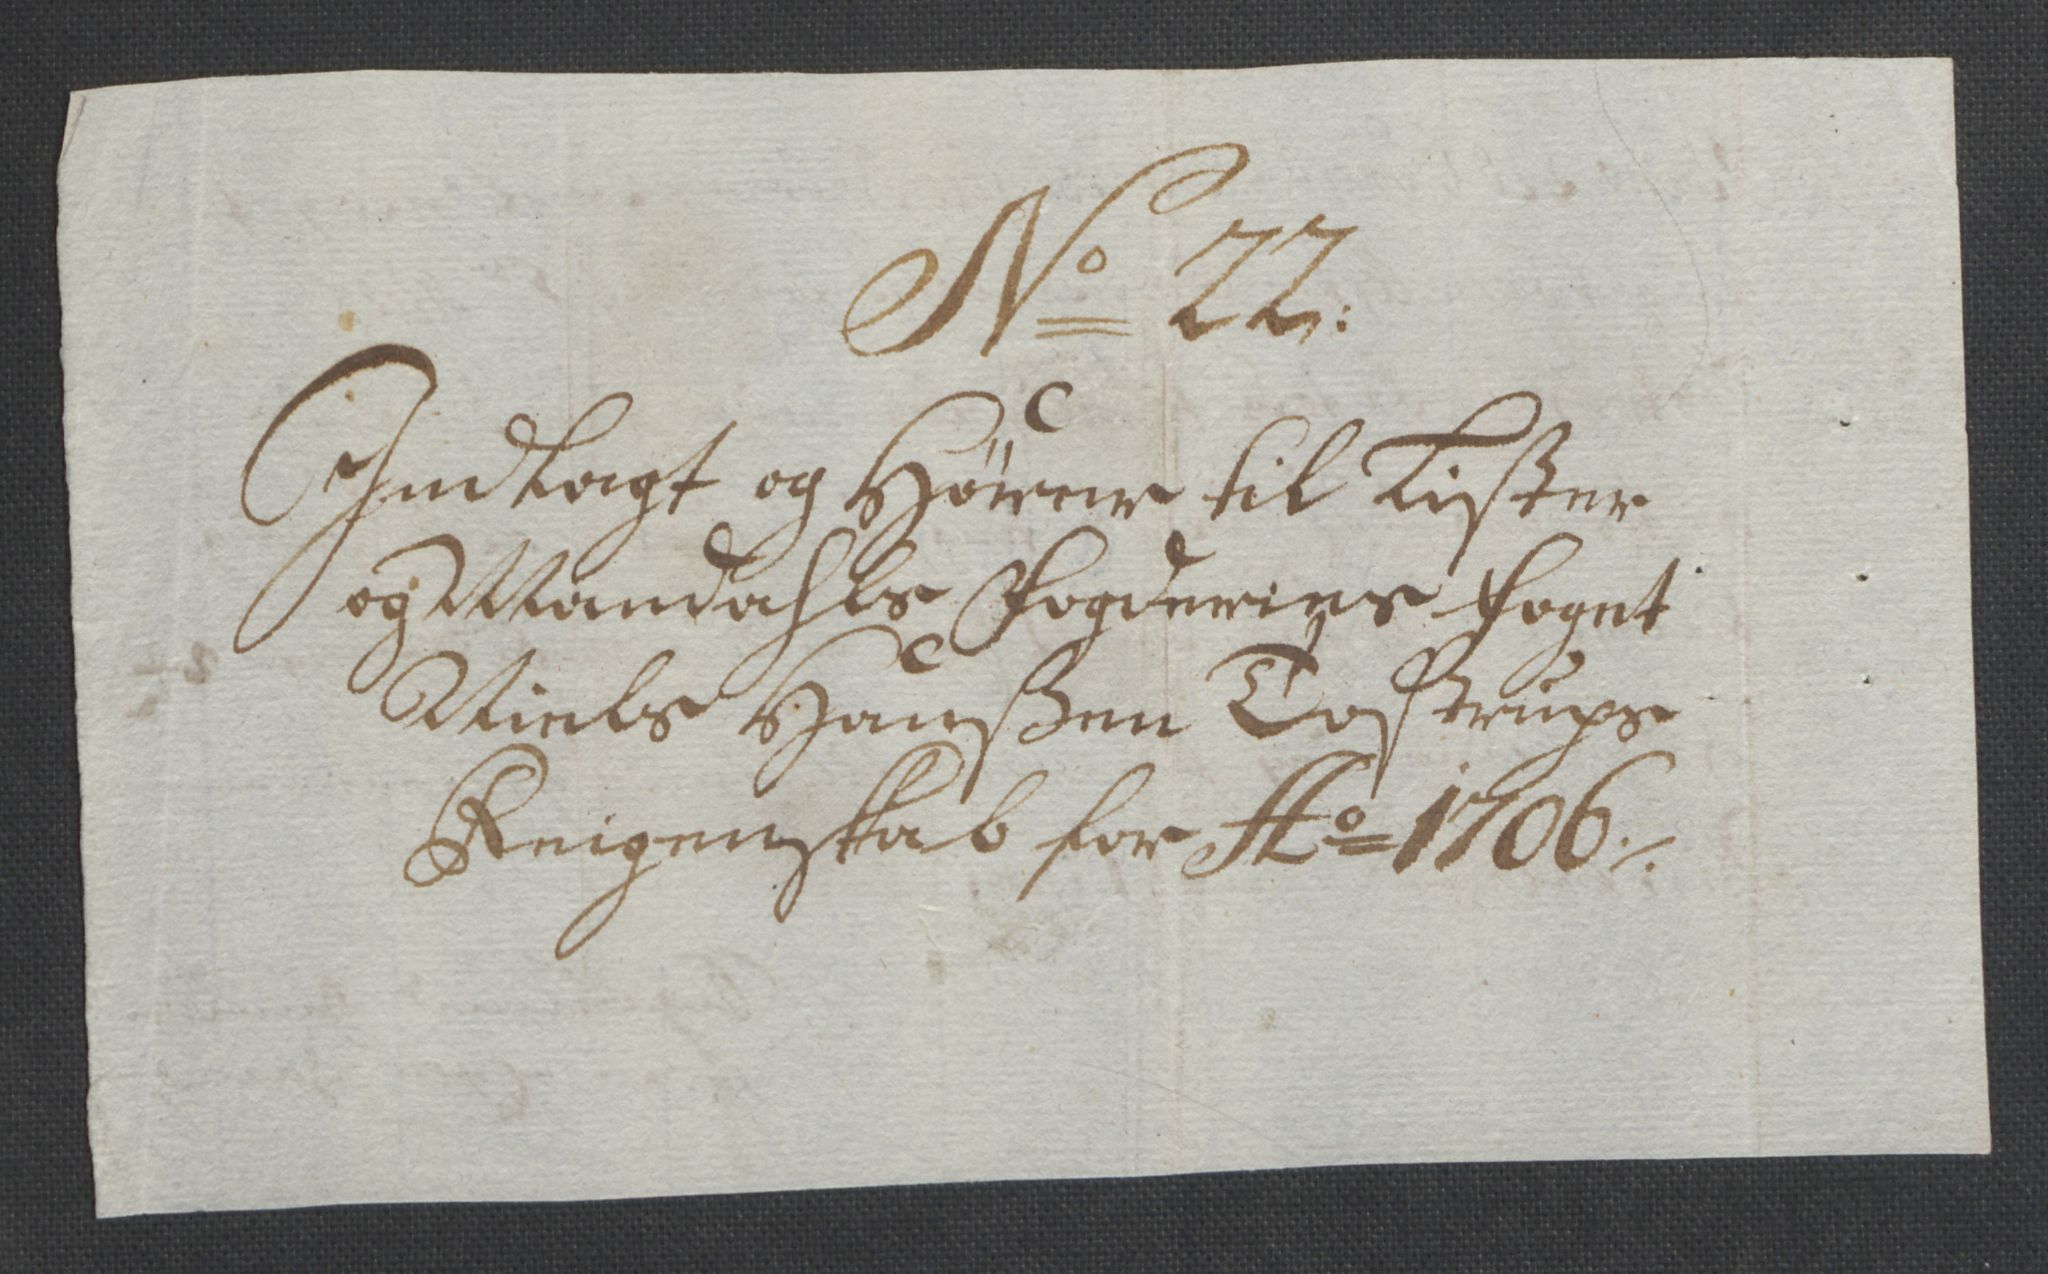 No 22:
Indlagt og Hörer til Lister
og Mandahls Fogderies Foget
Niels Hanßen Tostrups
Reigenskab for Ao 1706 ·/.